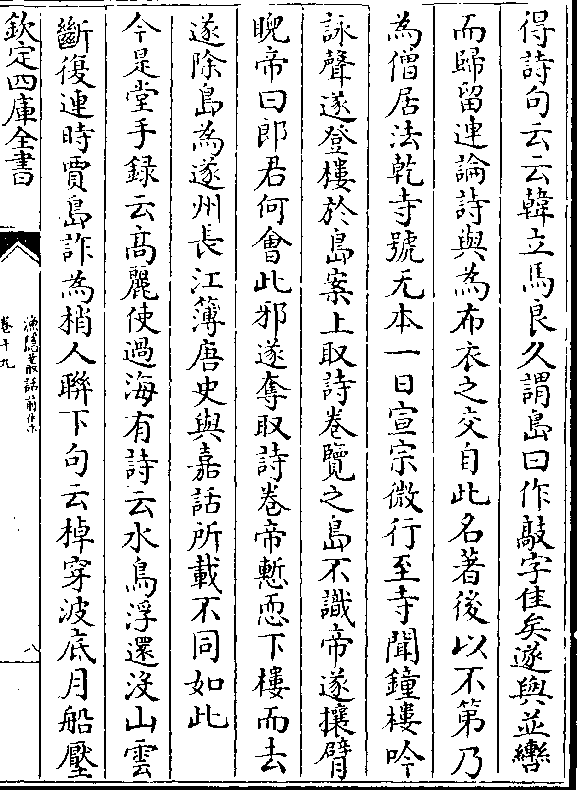 得詩句云云韓立馬良久謂島曰作敲字佳矣遂與並轡
而歸留連論詩與為布衣之交自此名著後以不第乃
為僧居法乾寺號无本一日宣宗微行至寺聞鐘樓吟
詠聲遂登樓於島案上取詩卷覽之島不識帝遂攘臂
睨帝曰郎君何會此邪遂奪取詩卷帝慙恧下樓而去
遂除島為遂州長江簿唐史與嘉話所載不同如此
今是堂手録云髙麗使過海有詩云水鳥浮還没山雲
斷復連時賈島詐為梢人聯下句云棹穿波底月船壓
欽定四庫全書
漁隱叢話前集
卷十九
八